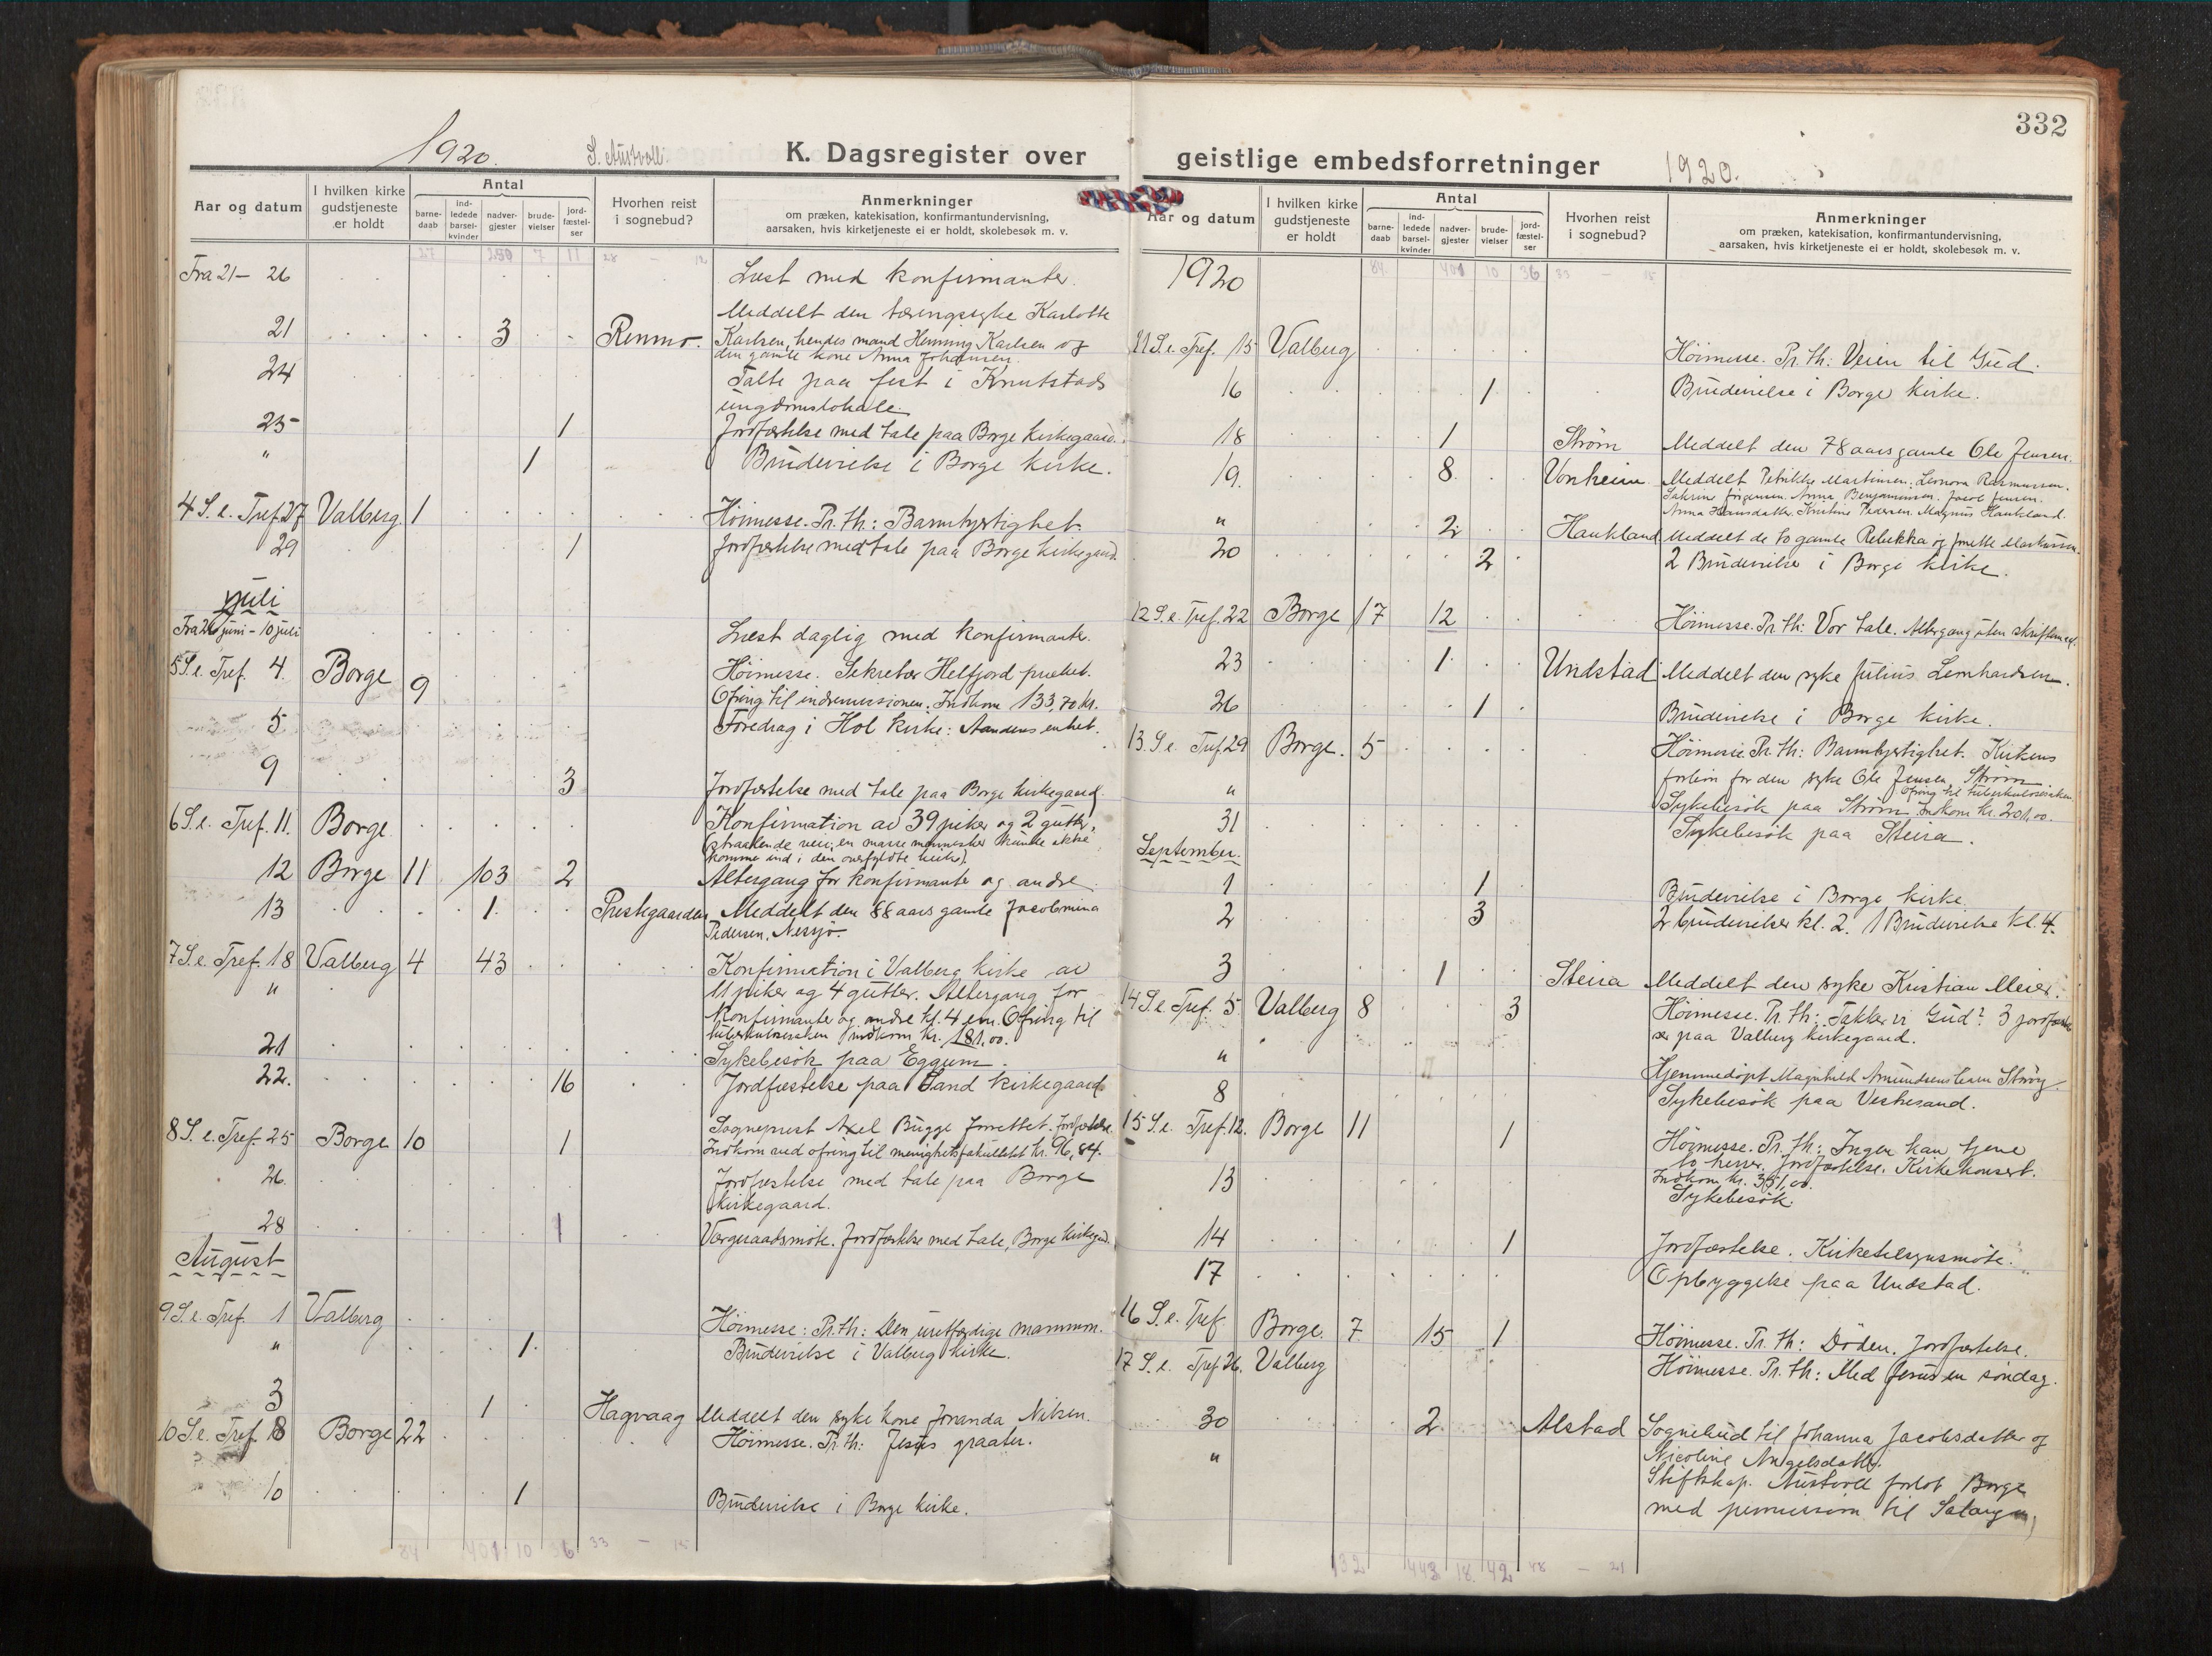 332
1920.
S. Austvoll.
K. Dagsregister over
Aar og datum
I hvilken kirke gudstjeneste er holdt
Antal
barne-daab
ind-ledede barsel-kvinder
nadver-gjester
brude-vielser
jord-fæstel-ser
Hvorhen reist i sognebud?
Anmerkninger
om præken, katekisation, konfirmantundervisning,
aarsaken, hvis kirketjeneste ei er holdt, skolebesøk m. v.
27 7 11 28 - 12
Fra 21 - 26 Læst med konfirmanter.
21 3 Renmo. Meddelt den tæringssyke Karlotte
Karlsen, hendes mand Henning Karlsen og
den gamle kone Anna Johansen.
24 Talte paa fest i Knutstads
ungdomslokale.
25 1 Jordfæstelse med tale paa Borge kirkegaard.
" 1 Brudevielse i Borge kirke.
4 S. e. Tref. 27 Valberg 1 Höimesse. Pr. th: Barmhjertighet.
29 1 Jordfæstelse med tale paa Borge kirkegaard.
Juli
Fra 26 juni - 10 juli Læst daglig med konfirmanter.
5 S. e. Tref. 4. Borge 9 Höimesse. Sekretær Helfjord præket.
Ofring til indremissionen. Indkom 133,70 kr.
5 Foredrag i Hol kirke: Aandens enhet.
9 3 Jordfæstelse med tale paa Borge kirkegaard.
6 S. e. Tref. 11. Borge Konfirmation av 39 piker og 2 gutter.
(straalende veir; en masse mennesker kunde ikke
komme ind i den overfyldte kirke).
12 Borge 11 103 2 Altergang for konfirmanter og andre.
13 1 Prestegaarden Meddelt den 88 aars gamle Jacobmina
Pedersen, Nessjø.
7 S. e. Tref. 18 Valberg 4 43 Konfirmation i Valberg kirke av
" 11 piker og 4 gutter. Altergang for
konfirmanter og andre kl. 4 em. Ofring til
tuberkulosesaken indkom kr. 181,00.
21 Sykebesök paa Eggum
22. 16 Jordfæstelse paa Sand kirkegaard
8 S. e. Tref. 25 Borge 10 1 Sogneprest Axel Bugge forrettet. Jordfæstelse.
Indkom ved ofring til menighetsfakultetet kr. 96,84.
26. Jordfæstelse med tale paa Borge
kirkegaard.
28 1 Vergeraadsmöte. Jordfæstelse med tale, Borge kirkegd.
August
9 S. e. Tref. 1 Valberg Höimesse: Pr. th: Den uretfærdige mammon.
" 1. Brudevielse i Valberg kirke.
3 1 Hagvaag Meddelt den syke kone Joranda Nilsen.
10 S. e. Tref. 8 Borge 22 Höimesse. Pr. th: Jesus graater.
10 1 Brudevielse i Borge kirke.
84 401 10 36 33 - 15
geistlige embedsforretninger
1920.
Aar og datum
I hvilken kirke gudstjeneste er holdt
Antal
barne-daab
ind-ledede barsel-kvinder
nadver-gjester
brude-vielser
jord-fæstel-ser
Hvorhen reist i sognebud?
Anmerkninger
om præken, katekisation, konfirmantundervisning,
aarsaken, hvis kirketjeneste ei er holdt, skolebesøk m. v.
84. 401 10 36 33 - 15
1920
11 S. e. Tref. 15 Valberg Höimesse. Pr. th: Veien til Gud.
16 1 Brudevielse i Borge kirke.
18 1 Strøm Meddelt den 78 aars gamle Ole Jensen.
19. 8 Vonheim Meddelt Petrikke Martinsen. Leonora Rasmussen.
Jörgensen. Anna Benjaminsen. Jacob Jensen.
Anna Hansdatter. Kristine Pedersen. Magnus Haukland.
" 2 Haukland Meddelt de to gamle Rebekka og Markussen.
20 2 2 Brudevielser i Borge kirke.
12 S. e. Tref. 22 Borge 17 12 Höimesse. Pr. th: Vor tale. Altergang uten skriftemaal.
23 1 Undstad Meddelt den syke Julius Leonhardsen.
26 1 Brudevielse i Borge kirke.
13. S. e. Tref. 29 Borge. 5 Höimesse. Pr. th: Barmhjertighet. Kirkens
forbön for den syke Ole Jensen, Strøm
Ofring til tuberkulosesaken
" Sykebesök paa Strøm. Indkom kr. 201,00.
31 Sykebesök paa Steira.
September.
1 1 Brudevielse i Borge kirke.
2 3 2 brudevielser kl. 2. 1 Brudevielse kl. 4.
3 1 Steira Meddelt den syke Kristian Meier.
14 S. e. Tref. 5 Valberg 8 3 Höimesse. Pr. th: Takker vi Gud? 3 jordfæstel-
ser paa Valberg kirkegaard.
" Hjemmedöpt Magnhild Amundsens barn
8 Sykebesök paa Vestresand.
15 S. e. Tref. 12. Borge 11 1 Höimesse. Pr. th: Ingen kan tjene
to herrer. Jordfæstelse. Kirkekonsert.
Indkom kr. 351,00.
13 Sykebesök.
14 1 Jordfæstelse. Kirketilsynsmöte.
17 Opbyggelse paa Undstad.
16 S. e. Tref. Borge. 7 15 1 Höimesse. Pr. th: Döden. Jordfæstelse.
17 S. e. Tref. 26. Valberg Höimesse. Pr. th: Med Jesus en söndag.
30 2 Alstad Sognebud til Johanna Jacobsdatter og
Nicoline Angelsdatter.
" Stiftskap. Austvoll forlot Borge
med permission til Salangen,
132 443 18 42 48 - 21